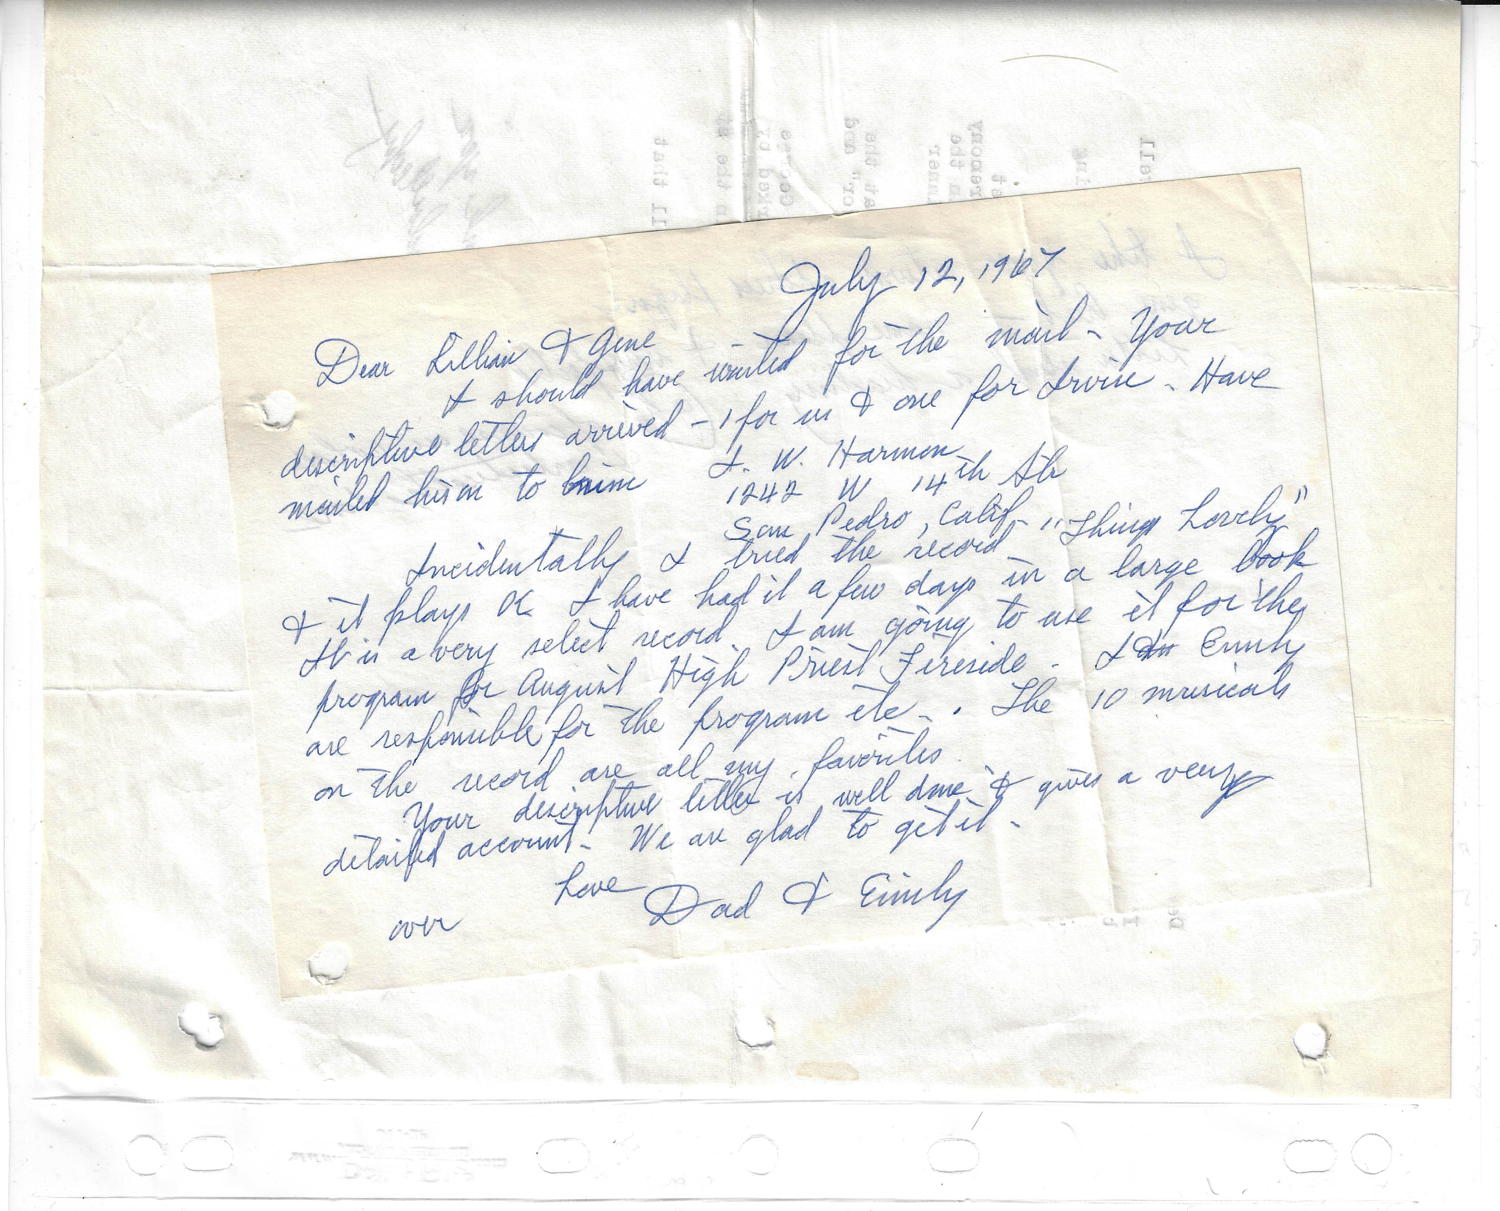 July 12, 1967
Dear Lillian & Gene
I should have waited for the mail - Your
descriptive letters arrived - 1 for us & one for Irvin - Have
mailed hisen to him
I. W. Harmon
1242 W 14th Str
San Pedro, Calif -
Incidentally I tried the record "Things Lovely"
& it plays OK I have had it a few days in a large book
It is a very select record. I am going to use it for the
program for August High Priest Fireside. I & Emily
are responsible for the program etc -. The 10 musicals
on the record are all my favorites.
Your descriptive letter is well done & gives a very
detailed account - We are glad to get it -
Love
Dad & Emily
over